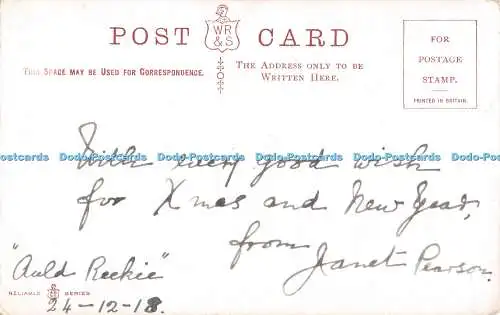 POST CARD
WR
&S
FOR
POSTAGE
STAMP.
PRINTED IN BRITAIN
THIS SPACE MAY BE USED FOR CORRESPONDENCE.
THE ADDRESS ONLY TO BE
WRITTEN HERE.
With every good wish
Dodo-Postcards Dodo-Postcards Dodo-Postcards Dodo-Postcards Dodo-Postcards
for Xmas and New Year,
from
Janet Pearson.
"Auld Reekie"
RELIABLE SERIES
24-12-18.